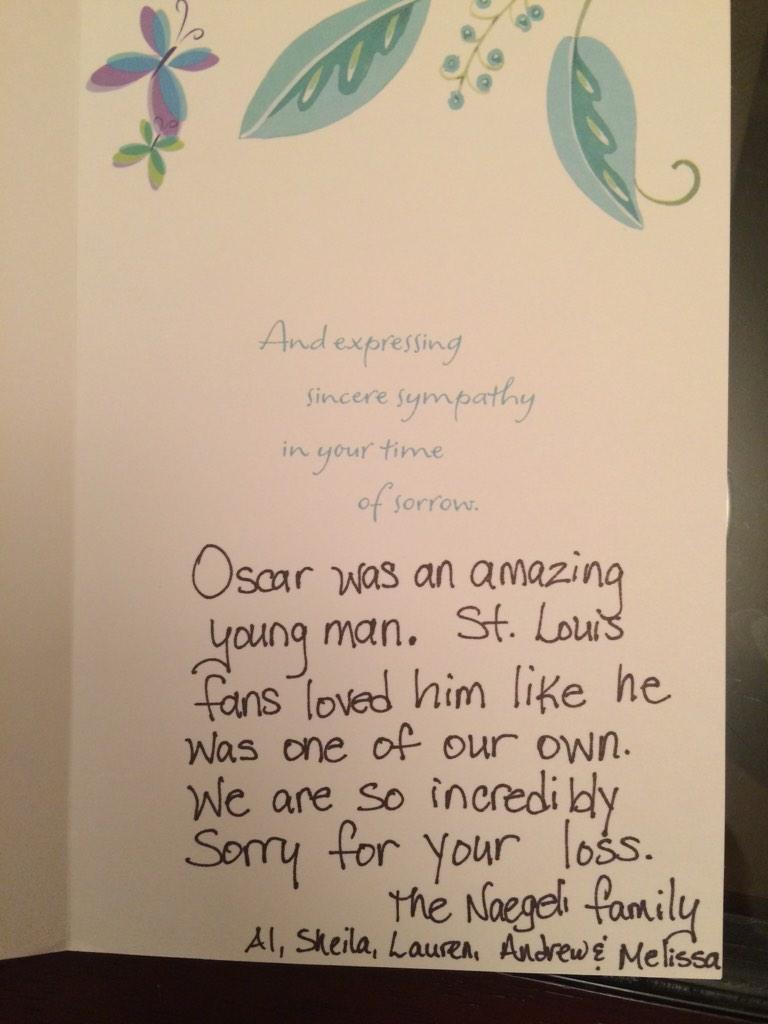 And expressing
sincere sympathy
in your time
of sorrow.
Oscar was an amazing
young man. St. Louis
fans loved him like he
was one of our own.
We are so incredibly
Sorry for your loss.
The Naegeli family
Al, Sheila, Lauren, Andrew & Melissa